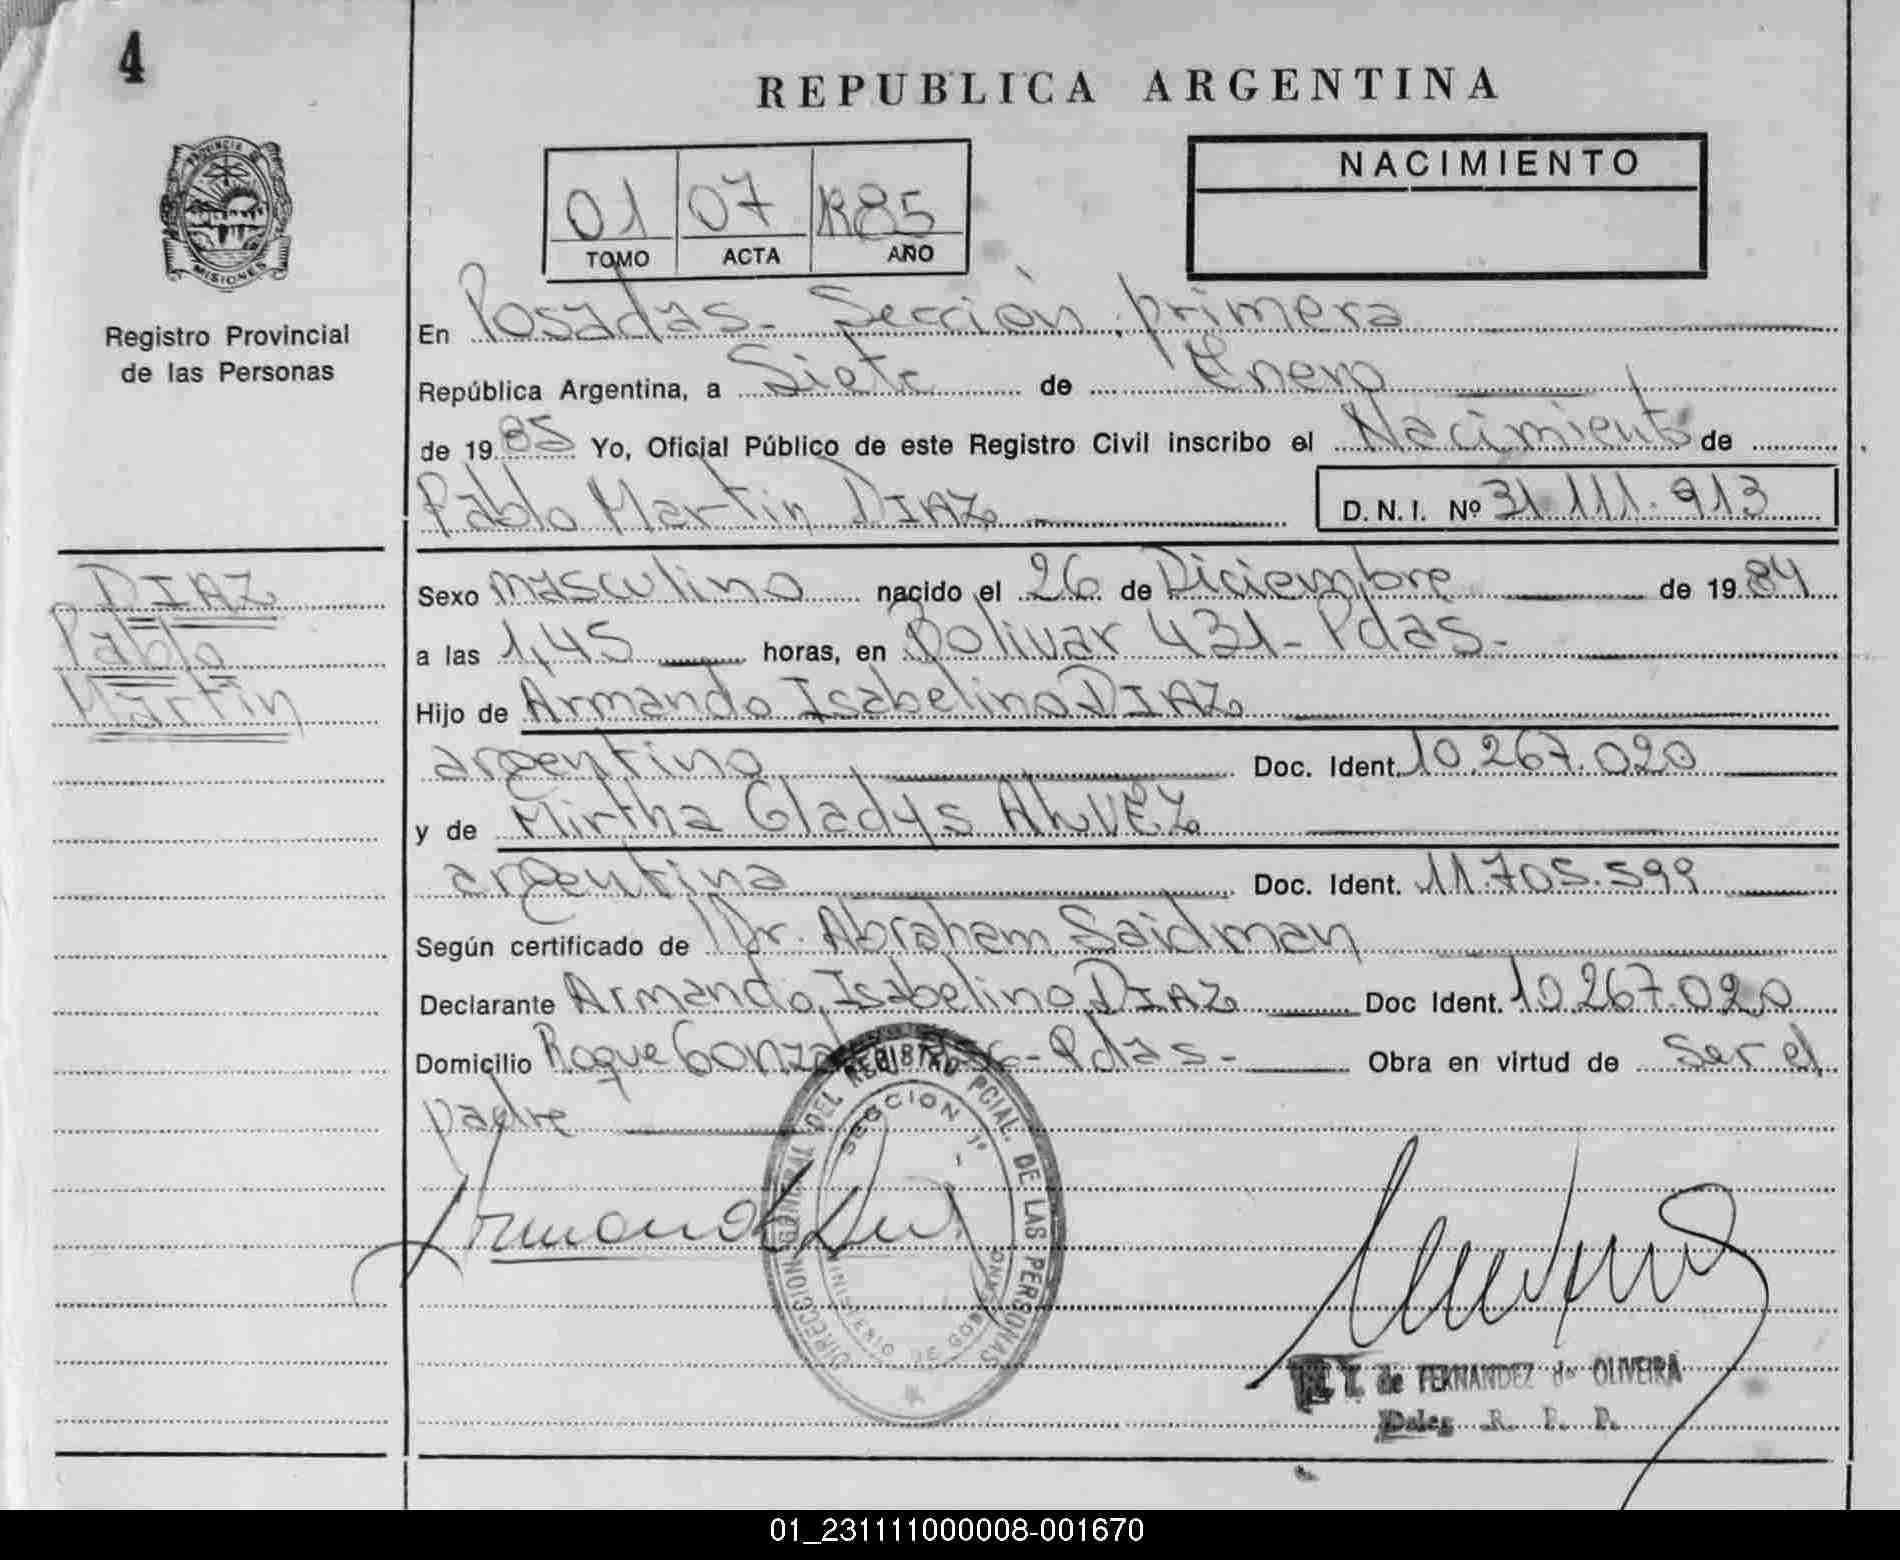 4
REPUBLICA ARGENTINA
PROVINCIA DE
MISIONES
Registro Provincial
de las Personas
01 07 1985
TOMO ACTA AÑO
NACIMIENTO
En Posadas - Sección primera
República Argentina, a Siete de Enero
de 19 85 Yo, Oficial Público de este Registro Civil inscribo el Nacimiento de
Pablo Martin DIAZ D.N.I. Nº 31.111.913
DIAZ
Pablo
Martin
Sexo masculino nacido el 26 de Diciembre de 19 84
a las 1,45 horas, en Bolivar 431 - Pdas -
Hijo de Armando Isabelino DIAZ
argentino Doc. Ident. 10.267.020
y de Mirtha Gladys ALVEZ
argentina Doc. Ident. 11.705.599
Según certificado de Dr. Abraham Saidman
Declarante Armando Isabelino DIAZ Doc Ident. 10.267.020
Domicilio Roque - Pdas - Obra en virtud de ser el
padre
DIRECCION GENERAL DEL REGISTRO PCIAL. DE LAS PERSONAS
SECCION 1ª
MINISTERIO DE GOBIERNO
de FERNANDEZ de OLIVEIRA
R. P. P.
01_231111000008-001670